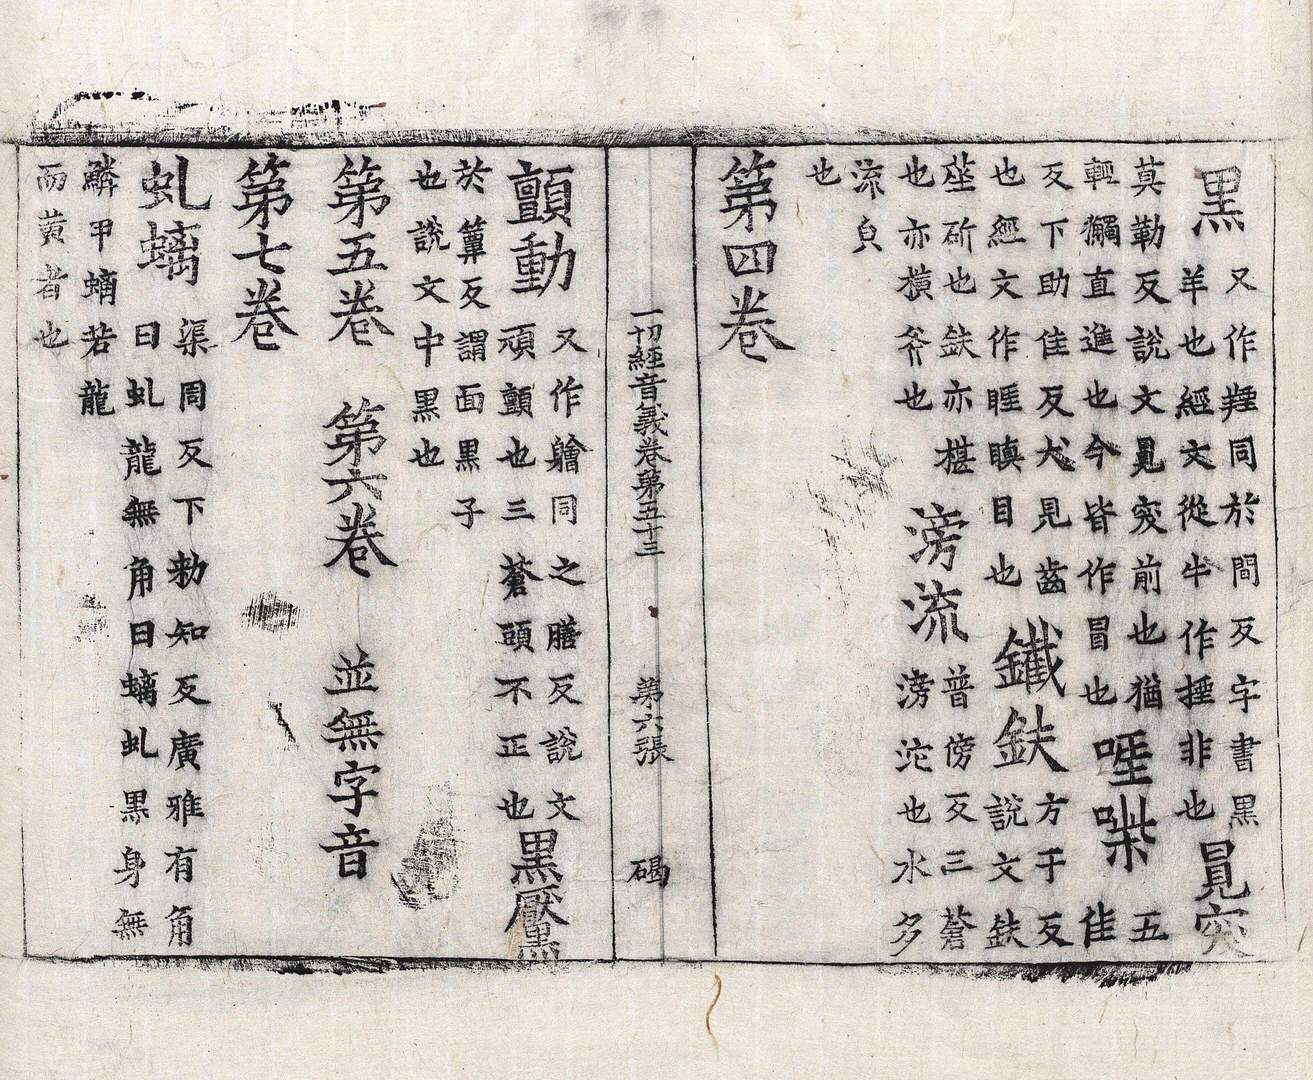 黑
又作羥同於間反字書黑
羊也經文從牛作非也
突
莫勒反說文突前也猶
輕獨直進也今皆作冒也
啀喍
五
佳
反下助佳反犬見齒
也經文作睚瞋目也
鐵鈇
方于反
說文鈇
莝斫也鈇亦椹
也亦橫斧也
滂流
普傍反三蒼
滂沱也水多
流皃
也
第四卷
一切經音義卷第五十三 第六張 碣
顫動
又作𩼤同之膳反說文
頑顫也三蒼頭不正也
黑黶
於簟反謂面黑子
也說文中黑也
第五卷 第六卷 並無字音
第七卷
虬螭
渠周反下勑知反廣雅有角
曰虬龍無角曰螭虬黑身無
鱗甲螭若龍
而黃者也